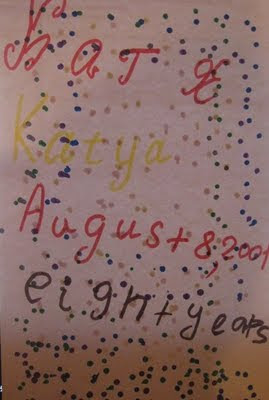 Katya
August 8, 2001
eight years